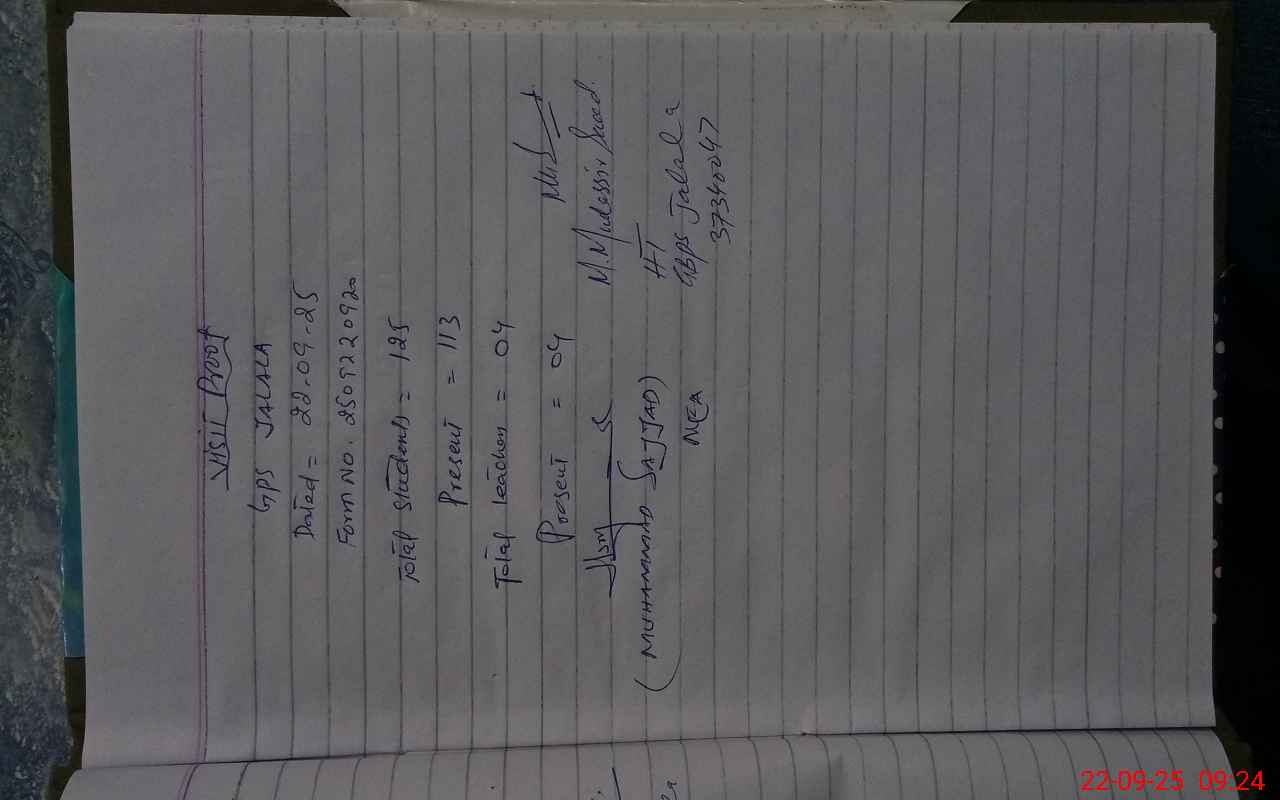 VISIT PROOF
GPS JALALA
Dated = 22.09.25
Form No. 2509220920
Total Students = 125
Present = 113
Total Teachers = 04
Present = 04
(MUHAMMAD SAJJAD)
MEA
M. Mudassir Saeed.
HT
GBPS Jalala
37340047
22-09-25 09:24